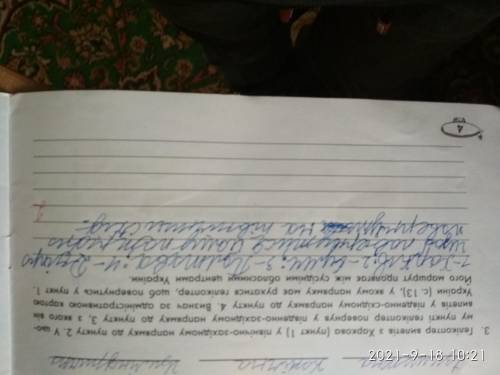 3. Гелікоптер вилетів з Харкова (пункт 1) у північно-західному напрямку до пункту 2. У цьо-
му пункті гелікоптер повернув у південно-західному напрямку до пункту 3, з якого він
вилетів у південно-східному напрямку до пункту 4. Визнач за адміністративною картою
України (с. 13), у якому напрямку має рухатися гелікоптер, щоб повернутися у пункт 1.
Його маршрут пролягає між сусідніми обласними центрами України.
1-Харків, 2-Суми, 3-Полтава, 4-Дніпро
щоб повернутися йому потрібно
на північний схід.
4
2021-9-18 10:21